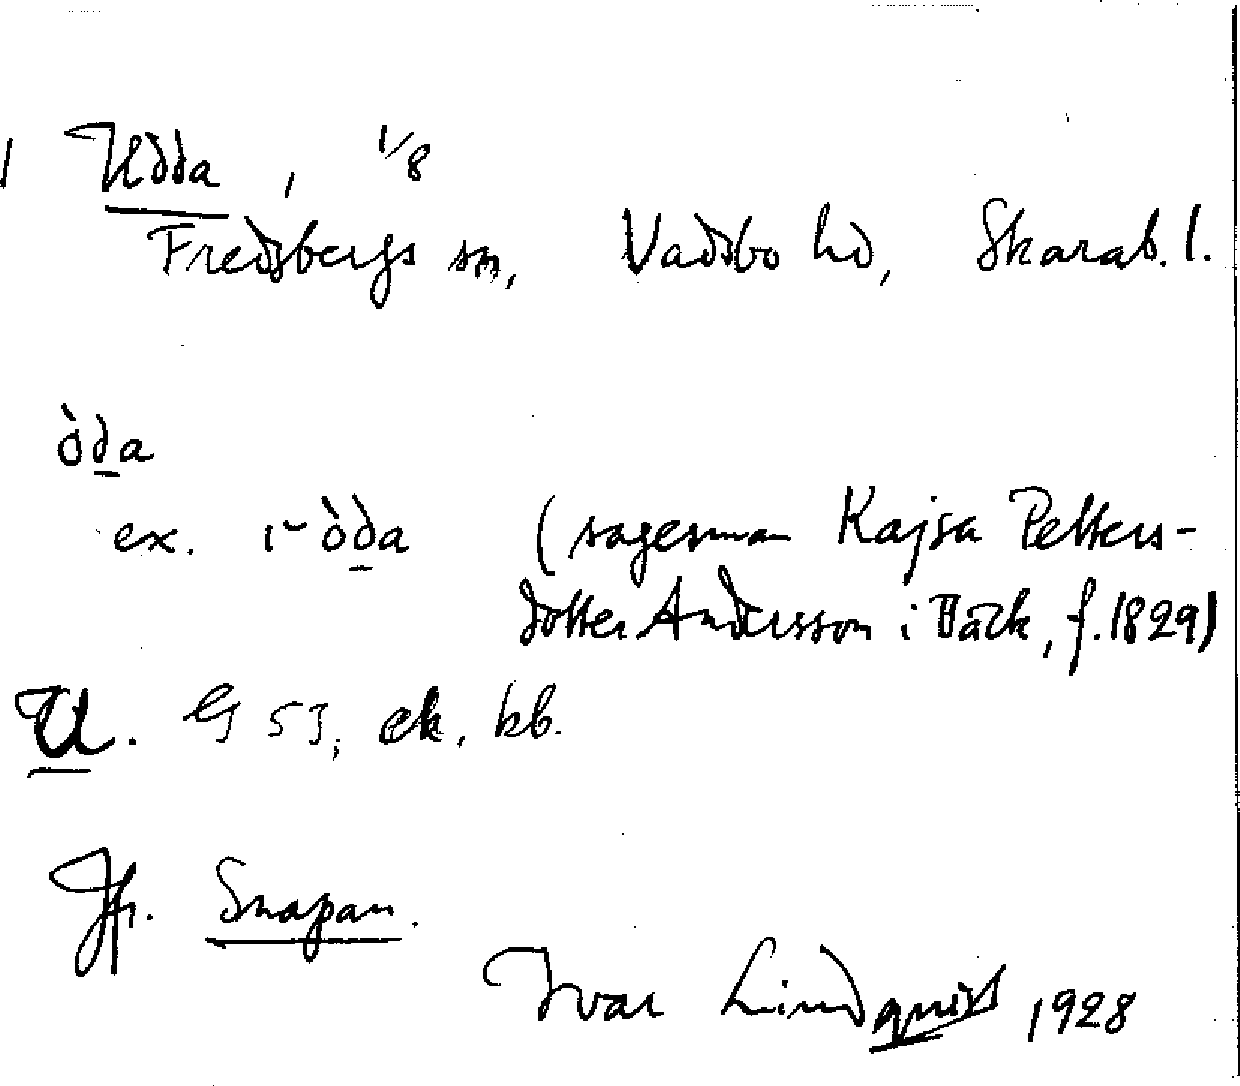 Udda, 1/8
Fredsbergs sn, Vadsbo hd, Skarab. l.
òda
ex. i òda (sagesman Kajsa Petters-
dotter Andersson i Bäck, f. 1829)
U. G 53; ek. kb.
Jfr. Snapan.
Ivar Lindquist 1928